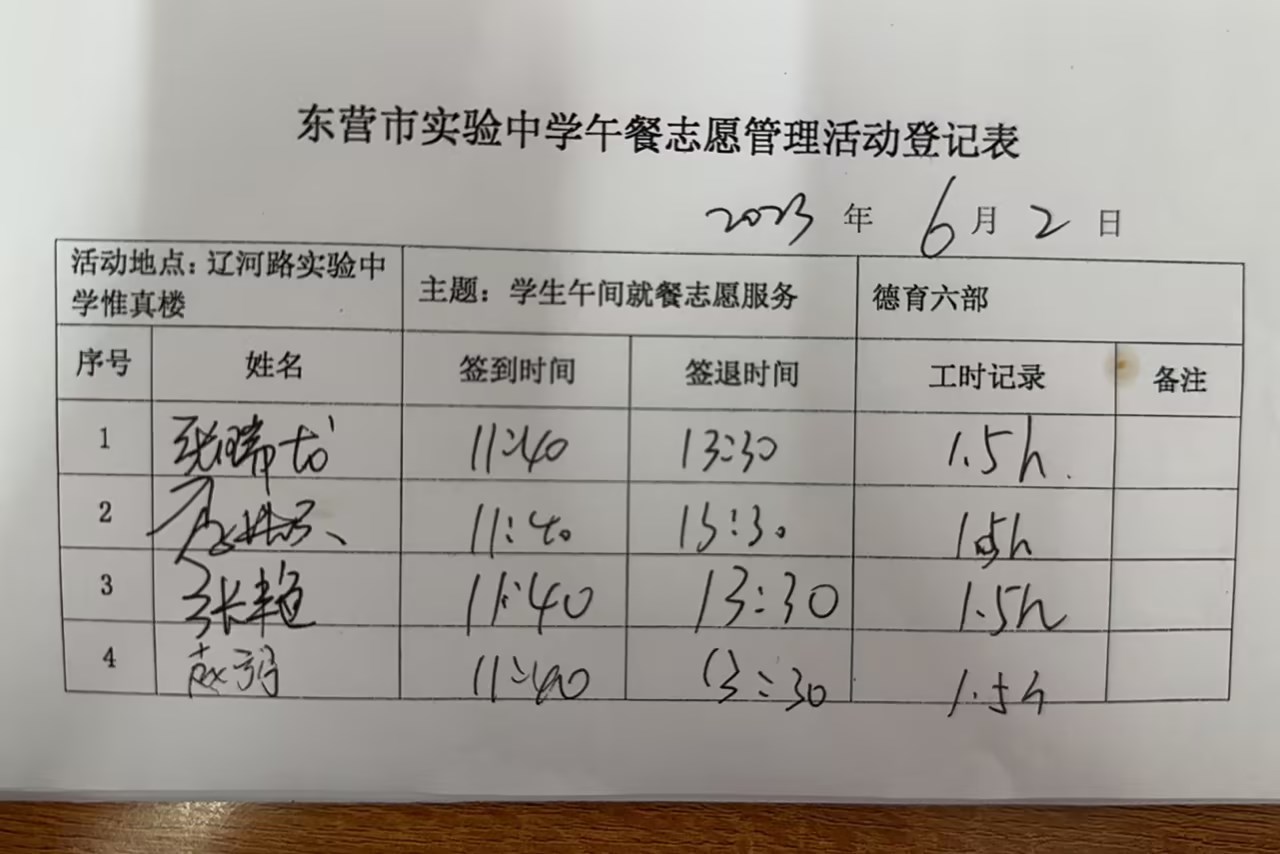 东营市实验中学午餐志愿管理活动登记表
2023 年 6 月 2 日
活动地点：辽河路实验中
学惟真楼
主题：学生午间就餐志愿服务
德育六部
序号 姓名 签到时间 签退时间 工时记录 备注
1 11:40 13:30 1.5h.
2 11:40 13:30 1.5h
3 张艳 11:40 13:30 1.5h
4 11:40 13:30 1.5h